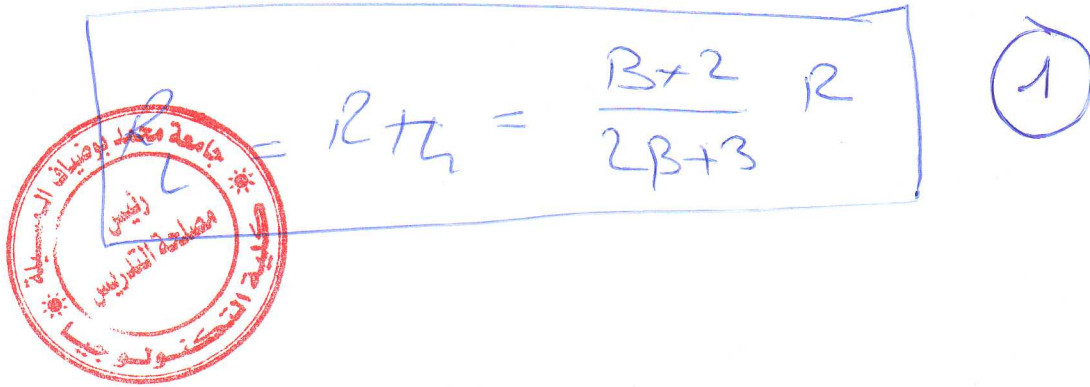 R_L = R_th = \frac{β+2}{2β+3} R
1
جامعة محمد بوضياف المسيلة
رئيس
مصلحة التدريس
كلية التكنولوجيا